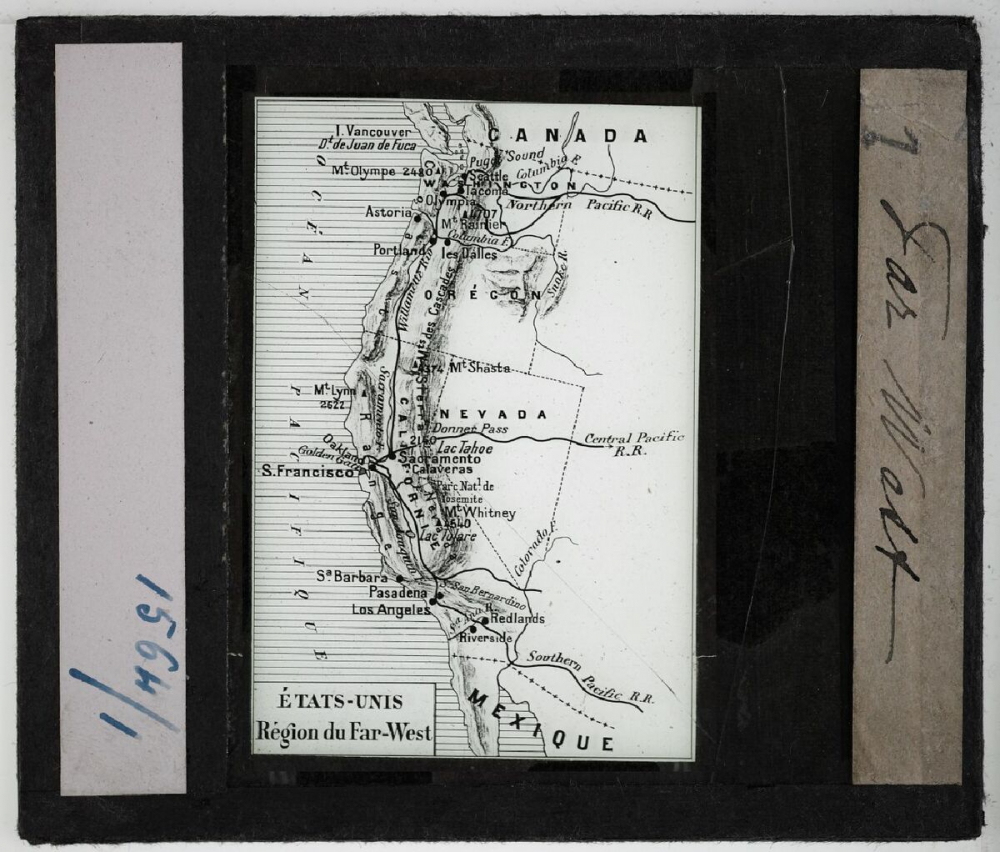 CANADA
I. Vancouver
Dt de Juan de Fuca
Puget Sound
Columbia F.
Mt Olympe 2480
Seattle
WASHINGTON
Tacoma
Olympia
Northern Pacific R.R
Astoria
4707
Mt Rainier
Columbia F.
Portland
les Dalles
Snake R.
Willamette R.
ORÉGON
Mts des Cascades
4374 Mt Shasta
Mt Lynn
2622
Sacramento
NEVADA
Donner Pass
2140
Central Pacific
R.R.
Lac Tahoe
Oakland
Golden Gate
Sacramento
S. Francisco
Calaveras
CALIFORNIE
Sierra Nevada
Parc Natl de
Yosemite
Mt Whitney
4540
Lac Tulare
San Joaquin
Colorado F.
Sa Barbara
Pasadena
Sa San Bernardino
Los Angeles
Sa Ana R.
Redlands
Riverside
Southern Pacific R.R.
MEXIQUE
OCÉAN PACIFIQUE
Coast Range
ÉTATS-UNIS
Région du Far-West
1564/1
Far West